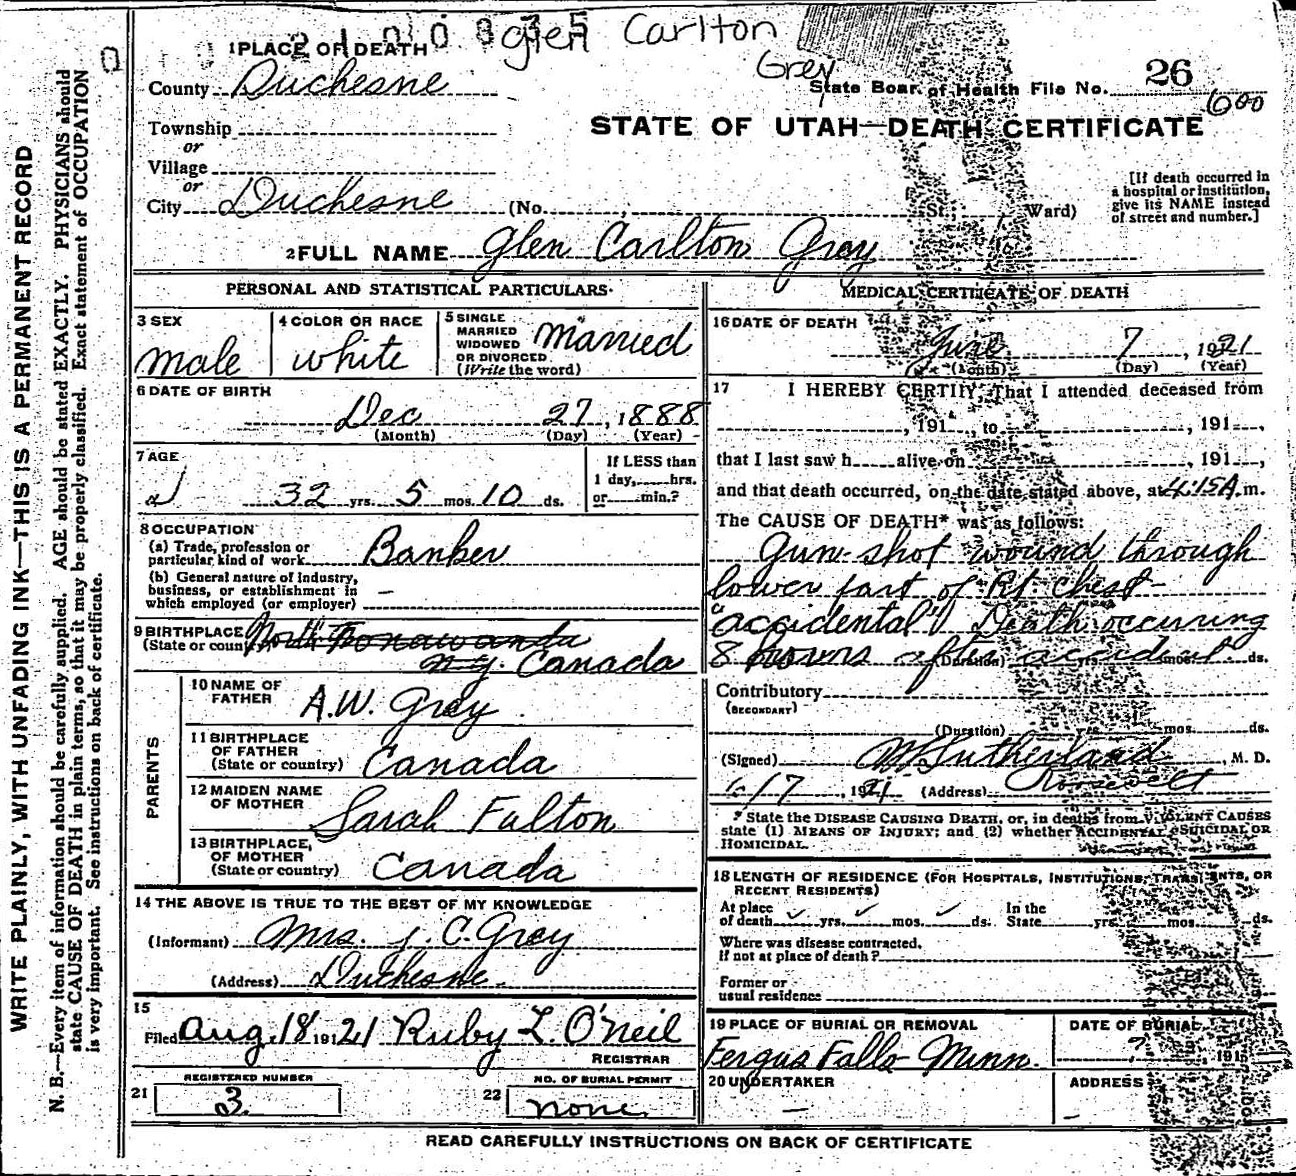 2100835 Glen Carlton
Grey
1 PLACE OF DEATH
County Duchesne
State Boar. of Health File No. 26
600
Township
or
Village
or
City Duchesne (No. , St. Ward)
STATE OF UTAH—DEATH CERTIFICATE
[If death occurred in
a hospital or institution,
give its NAME instead
of street and number.]
2 FULL NAME Glen Carlton Grey
PERSONAL AND STATISTICAL PARTICULARS
3 SEX
male
4 COLOR OR RACE
white
5 SINGLE
MARRIED
WIDOWED
OR DIVORCED
(Write the word)
married
6 DATE OF BIRTH
Dec 27, 1888
(Month) (Day) (Year)
7 AGE
32 yrs. 5 mos. 10 ds.
If LESS than
1 day, hrs.
or min.?
8 OCCUPATION
(a) Trade, profession or
particular kind of work Banker
(b) General nature of Industry,
business, or establishment in
which employed (or employer) –
9 BIRTHPLACE North Tonawanda
(State or country) N.Y. Canada
PARENTS
10 NAME OF
FATHER A.W. Grey
11 BIRTHPLACE
OF FATHER
(State or country) Canada
12 MAIDEN NAME
OF MOTHER Sarah Fulton
13 BIRTHPLACE,
OF MOTHER
(State or country) Canada
14 THE ABOVE IS TRUE TO THE BEST OF MY KNOWLEDGE
(Informant) Mrs. J. C. Grey
(Address) Duchesne
15
Filed Aug. 18 191 21 Ruby L. O'Neil
REGISTRAR
21 REGISTERED NUMBER
3
22 NO. OF BURIAL PERMIT
none
MEDICAL CERTIFICATE OF DEATH
16 DATE OF DEATH
June 7, 1921
(Month) (Day) (Year)
17 I HEREBY CERTIFY, That I attended deceased from
, 191 , to , 191 ,
that I last saw h alive on , 191 ,
and that death occurred, on the date stated above, at 4:15 A. m.
The CAUSE OF DEATH* was as follows:
Gun-shot wound through
lower part of Rt. chest-
"accidental" Death occuring
8 hours after accident
(Duration) yrs. mos. ds.
Contributory
(SECONDARY)
(Duration) yrs. mos. ds.
(Signed) Sutherland, M. D.
6/17, 1921 (Address) Roosevelt
* State the DISEASE CAUSING DEATH, or, in deaths from VIOLENT CAUSES
state (1) MEANS OF INJURY; and (2) whether ACCIDENTAL, SUICIDAL OR
HOMICIDAL.
18 LENGTH OF RESIDENCE (FOR HOSPITALS, INSTITUTIONS, TRANSIENTS, OR
RECENT RESIDENTS)
At place In the
of death yrs. mos. ds. State yrs. mos. ds.
Where was disease contracted.
If not at place of death?
Former or
usual residence
19 PLACE OF BURIAL OR REMOVAL
Fergus Falls Minn.
DATE OF BURIAL
? 191
20 UNDERTAKER
–
ADDRESS
–
READ CAREFULLY INSTRUCTIONS ON BACK OF CERTIFICATE
WRITE PLAINLY, WITH UNFADING INK—THIS IS A PERMANENT RECORD
N. B.—Every item of information should be carefully supplied. AGE should be stated EXACTLY. PHYSICIANS should
state CAUSE OF DEATH in plain terms, so that it may be properly classified. Exact statement of OCCUPATION
is very important. See instructions on back of certificate.